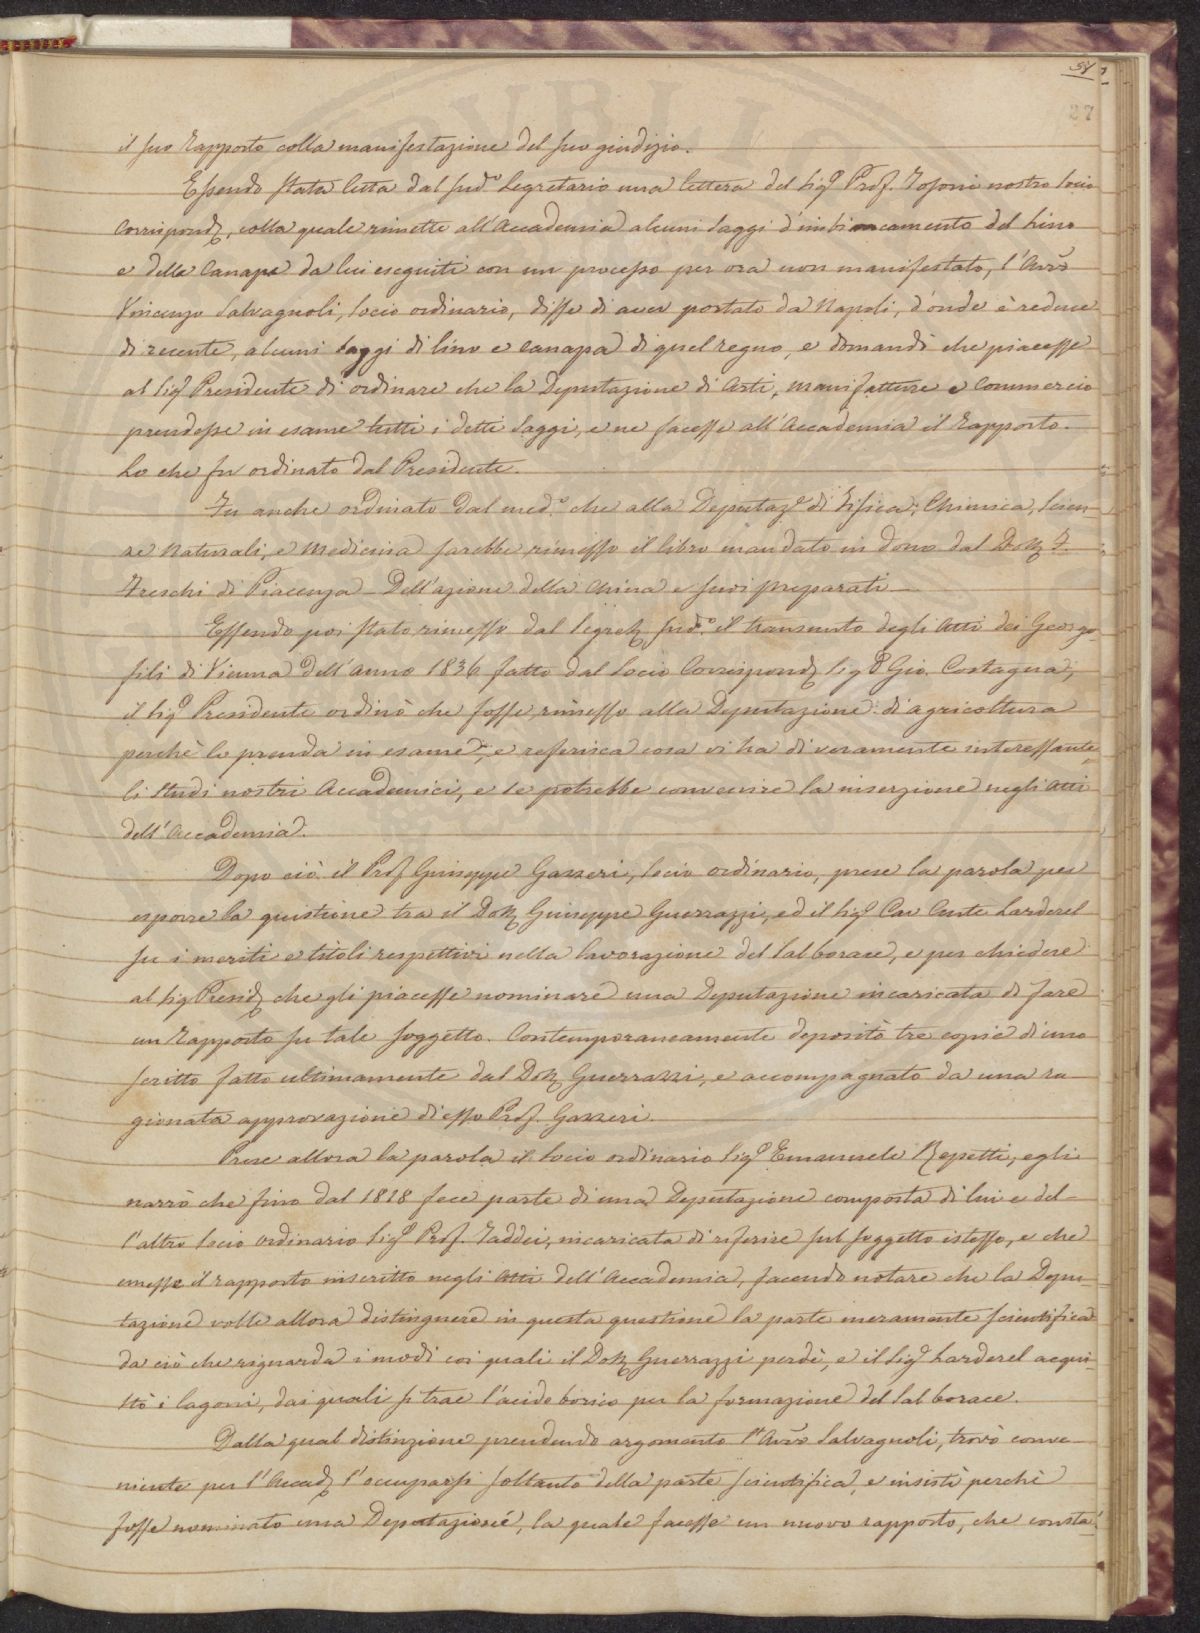 57
27
il suo Rapporto colla manifestazione del suo giudizio.
Essendo stata letta dal sud.o Segretario una lettera del Sig.e Prof. Tosoni nostro Socio
Corrispond., colla quale rimette all'Accademia alcuni Saggi d'imbiancamento del Lino
e della Canapa da lui eseguiti con un processo per ora non manifestato, l'Avv.o
Vincenzo Salvagnoli, Socio ordinario, disse di aver portato da Napoli, d'onde è reduce
di recente, alcuni saggi di lino e canapa di quel regno, e domandò che piacesse
al Sig.e Presidente di ordinare che la Deputazione di Arti, Manifatture e Commercio
prendesse in esame tutti i detti Saggi, e ne facesse all'Accademia il Rapporto.
Lo che fu ordinato dal Presidente.
Fu anche ordinato dal med.o che alla Deputaz.e di Fisica, Chimica, Scien-
ze Naturali, e Medicina sarebbe rimesso il libro mandato in dono dal Dott. F.
Freschi di Piacenza - Dell'azione della China e suoi preparati -
Essendo poi stato rimesso dal Segret. sud.o il transunto degli Atti dei Georgo-
fili di Vienna dell'Anno 1836 fatto dal Socio Corrispond. Sig.e Gio. Costagna,
il Sig.e Presidente ordinò che fosse rimesso alla Deputazione di agricoltura
perchè lo prenda in esame, e referisca cosa vi ha di veramente interessante
li studi nostri Accademici, e se potrebbe convenire la inserzione negli Atti
dell'Accademia.
Dopo ciò il Prof. Giuseppe Gazzeri, Socio ordinario, prese la parola per
esporre la quistione tra il Dott. Giuseppe Guerrazzi, ed il Sig.e Cav. Conte Larderel
su i meriti e titoli respettivi nella lavorazione del Sal borace, e per chiedere
al Sig. Presid. che gli piacesse nominare una Deputazione incaricata di fare
un Rapporto su tale soggetto. Contemporaneamente depositò tre copie di uno
scritto fatto ultimamente dal Dott. Guerrazzi, e accompagnato da una ra
gionata approvazione di esso Prof. Gazzeri.
Prese allora la parola il Socio ordinario Sig.e Emanuele Repetti, egli
narrò che fino dal 1818 fece parte di una Deputazione composta di lui e del-
l'altro Socio ordinario Sig.e Prof. Taddei, incaricata di riferire sul soggetto istesso, e che
emesse il rapporto inscritto negli Atti dell'Accademia, facendo notare che la Depu-
tazione volle allora distinguere in questa questione la parte meramente scientifica
da ciò che riguarda i modi coi quali il Dott. Guerrazzi perdè, e il Sig.e Larderel acqui-
stò i lagoni, dai quali si trae l'acido borico per la formazione del Sal borace.
Dalla qual distinzione prendendo argomento l'Avv.o Salvagnoli, trovò conve-
niente per l'Accad. l'occuparsi soltanto della parte scientifica, e insistè perchè
fosse nominato una Deputazione, la quale facesse un nuovo rapporto, che consta-